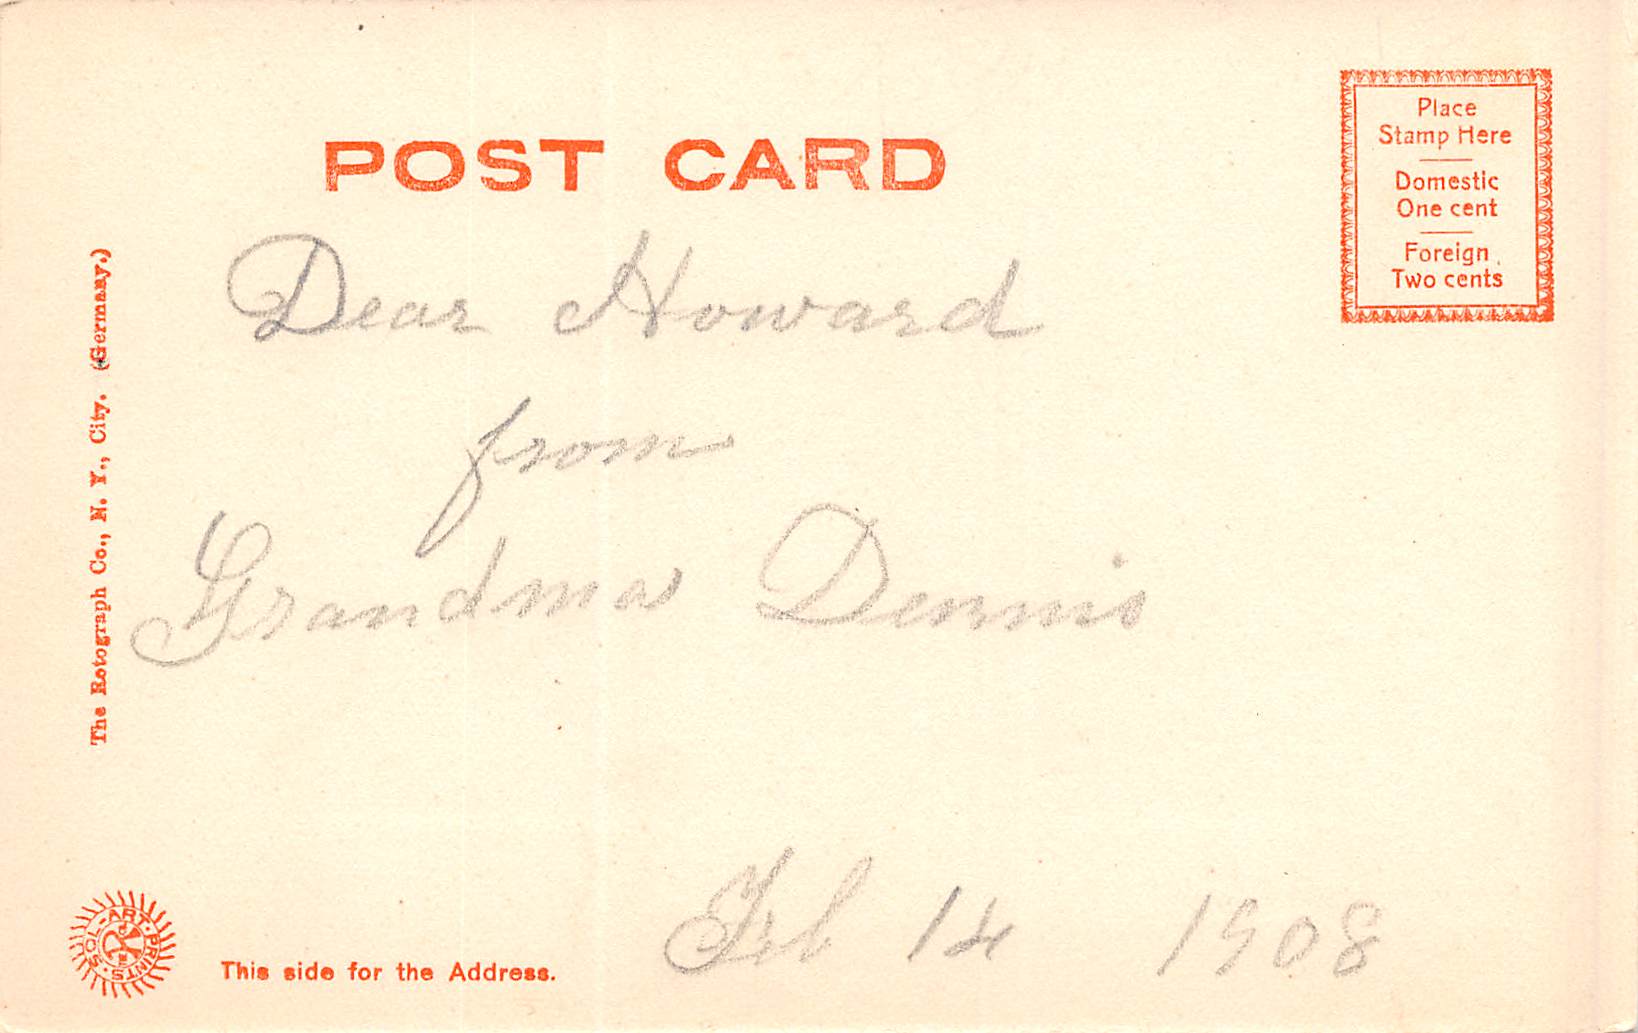 POST CARD
Place
Stamp Here
Domestic
One cent
Foreign
Two cents
Dear Howard
from
Grandma Dennis
Feb 14 1908
The Rotograph Co., N. Y., City. (Germany.)
SOL-ART-PRINTS
This side for the Address.